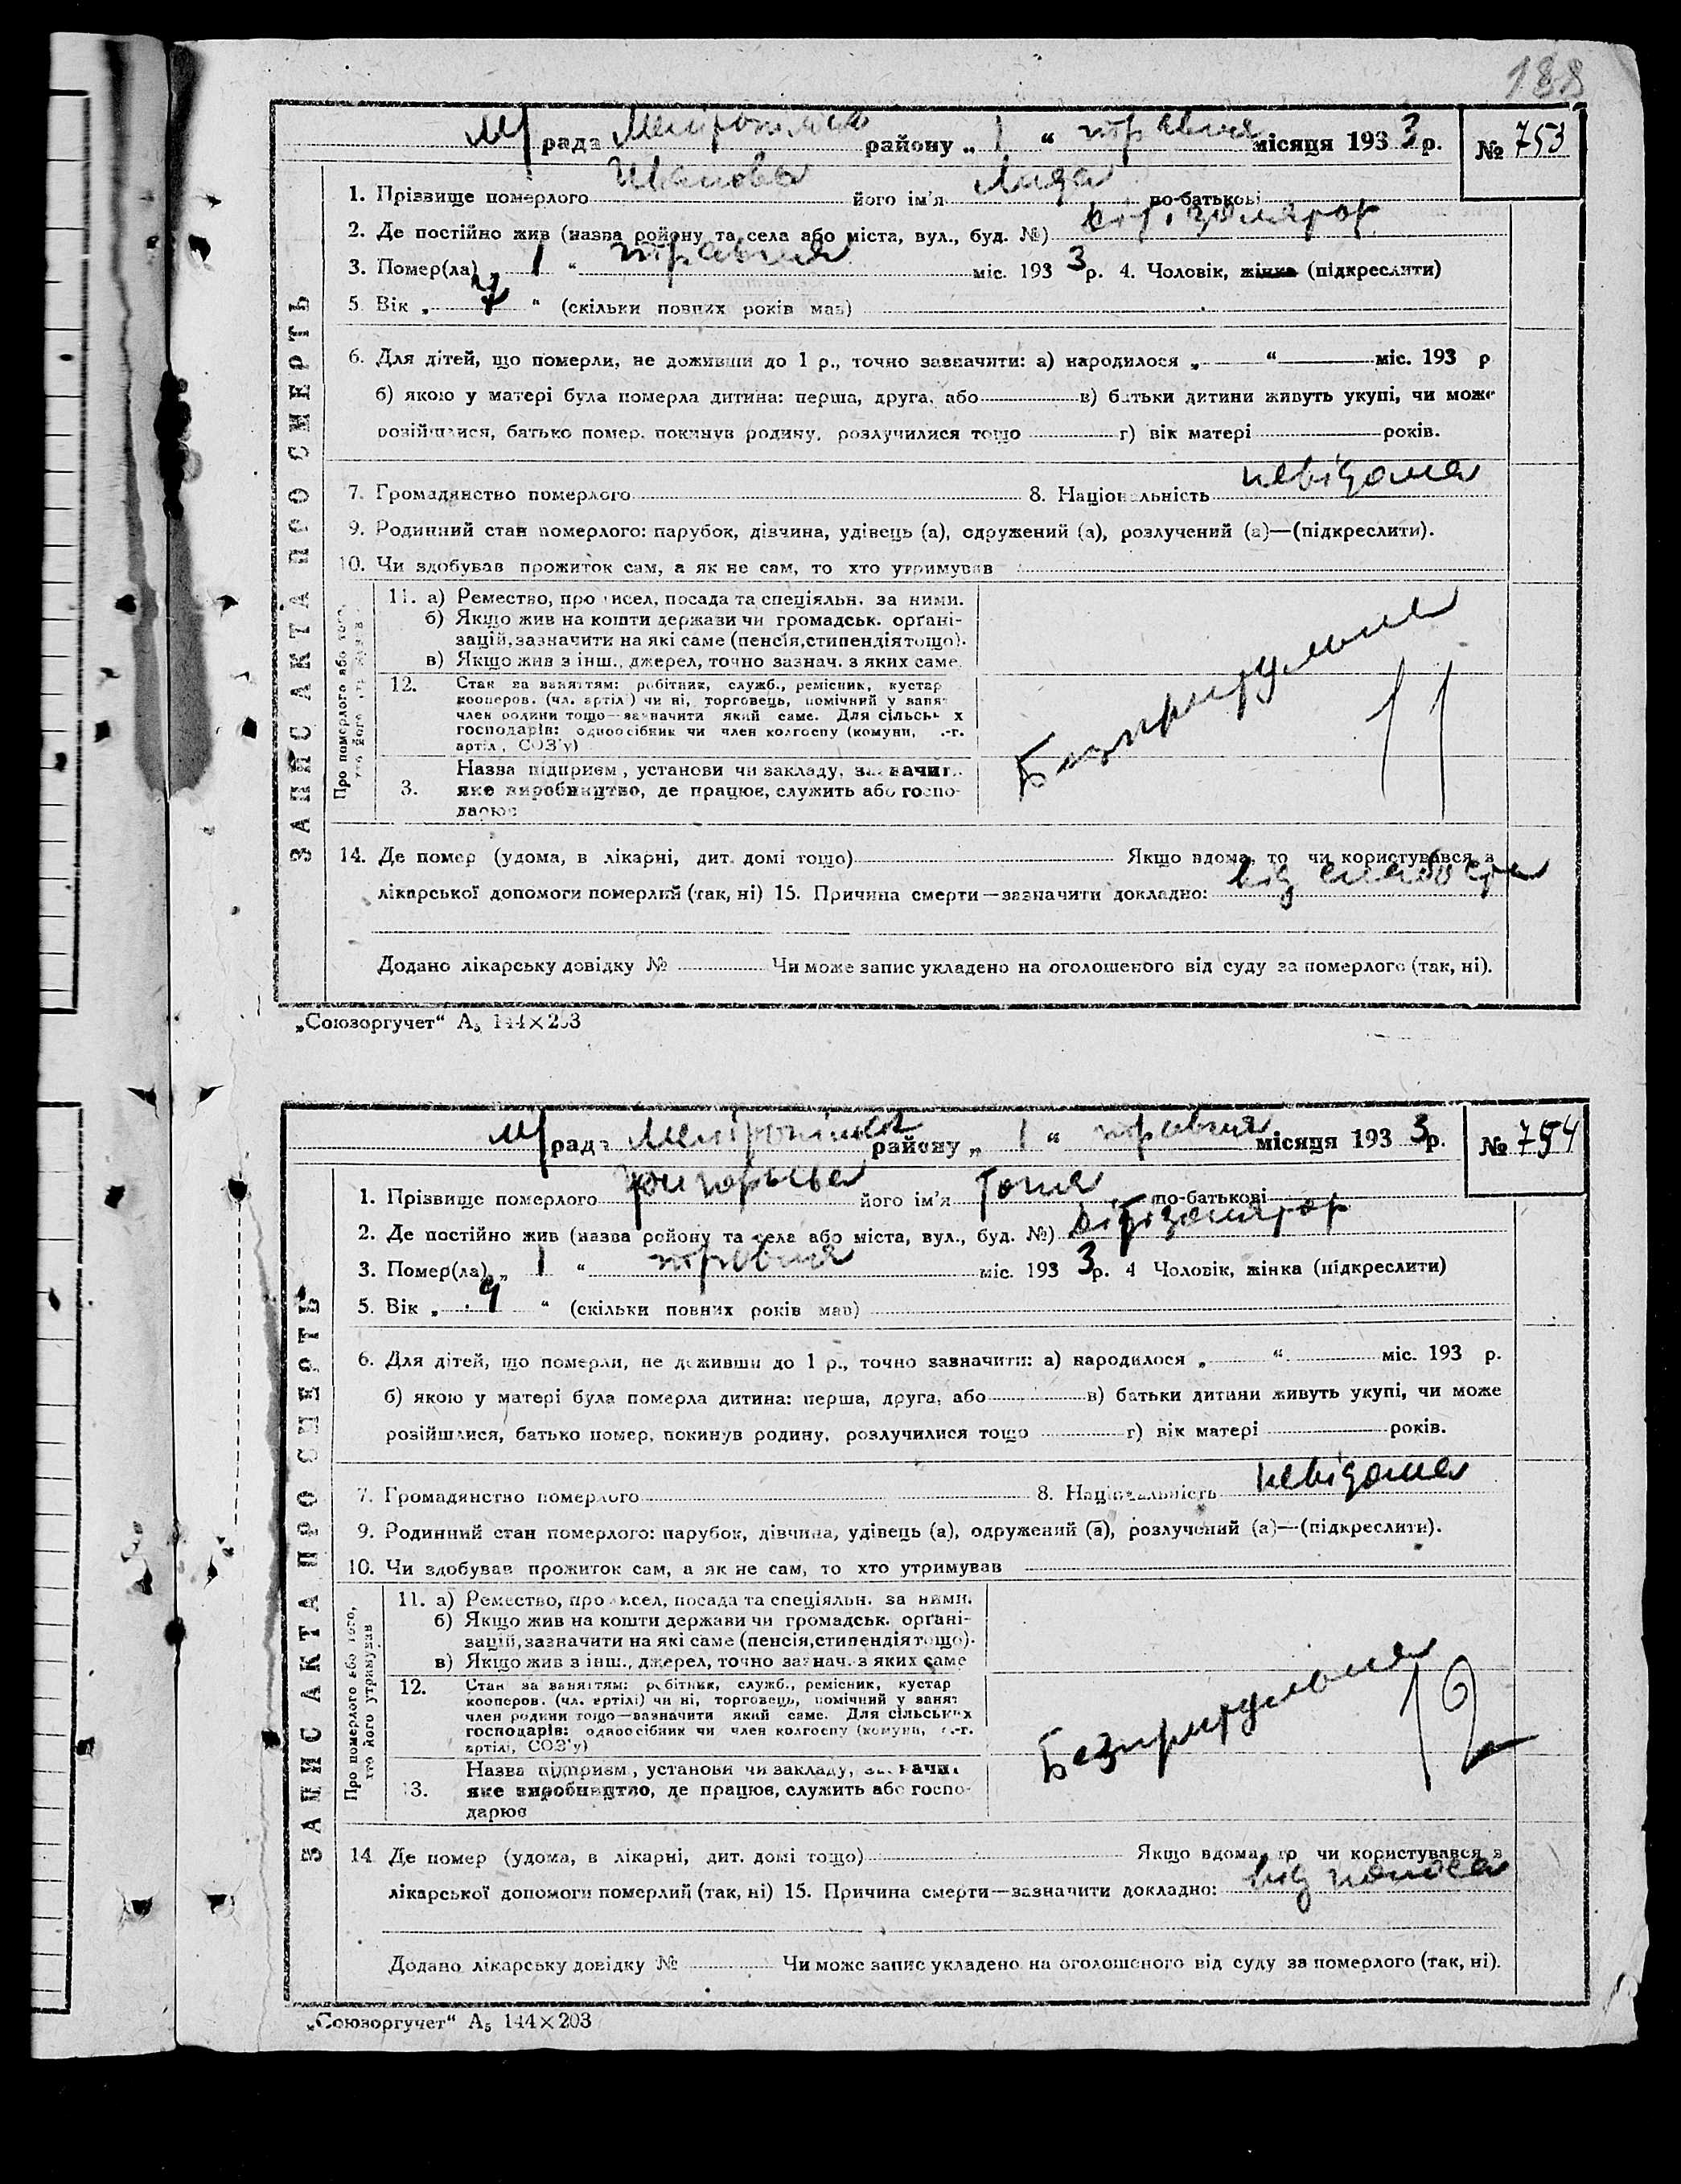 188
М/ рада Мелітопільск району „ 1 “ травня місяця 193 3 р. № 753
1. Прізвище померлого Иванова його ім'я Лида по-батькові
2. Де постійно жив (назва району та села або міста, вул., буд. №)
3. Помер(ла) „ 1 “ травня міс. 193 3 р. 4. Чоловік, жінка (підкреслити)
5. Вік „ 7 “ (скільки повних років мав)
6. Для дітей, що померли, не доживши до 1 р., точно зазначити: а) народилося „ “ міс. 193 р
б) якою у матері була померла дитина: перша, друга, або в) батьки дитини живуть укупі, чи може
розійшлися, батько помер, покинув родину, розлучилися тощо г) вік матері років.
7. Громадянство померлого 8. Національність невідома
9. Родинний стан померлого: парубок, дівчина, удівець (а), одружений (а), розлучений (а)—(підкреслити).
10. Чи здобував прожиток сам, а як не сам, то хто утримував
ЗАПИС АКТА ПРО СМЕРТЬ
Про померлого або того, хто його утримував
11. а) Ремество, промисел, посада та спеціяльн. за ними.
б) Якщо жив на кошти держави чи громадськ. орґані-
зацій, зазначити на які саме (пенсія, стипендія тощо).
в) Якщо жив з інш., джерел, точно зазнач. з яких саме.
12. Стан за заняттям: робітник, служб., ремісник, кустар
кооперов. (чл. артілі) чи ні, торговець, помічний у занят
член родини тощо—зазначити який саме. Для сільськ х
господарів: одноосібник чи член колгоспу (комуни, с.-г.
артіл, СОЗ'у)
Безпритульна 11
Назва підприєм, установи чи закладу, зазначит
3. яке виробництво, де працює, служить або госпо-
дарює
14. Де помер (удома, в лікарні, дит. домі тощо) Якщо вдома, то чи користувався з
лікарської допомоги померлий (так, ні) 15. Причина смерти—зазначити докладно: від слабости
Додано лікарську довідку № Чи може запис укладено на оголошеного від суду за померлого (так, ні).
„Союзоргучет“ А5 144×203
М/ рада Мелітопільск району „ 1 “ травня місяця 193 3 р. № 754
1. Прізвище померлого Григорьева його ім'я Тоня по-батькові
2. Де постійно жив (назва району та села або міста, вул., буд. №)
3. Помер(ла) „ 1 “ травня міс. 193 3 р. 4 Чоловік, жінка (підкреслити)
5. Вік „ 9 “ (скільки повних років мав)
6. Для дітей, що померли, не доживши до 1 р., точно зазначити: а) народилося „ “ міс. 193 р.
б) якою у матері була померла дитина: перша, друга, або в) батьки дитини живуть укупі, чи може
розійшлися, батько помер, покинув родину, розлучилися тощо г) вік матері років.
7. Громадянство померлого 8. Національність невідома
9. Родинний стан померлого: парубок, дівчина, удівець (а), одружений (а), розлучений (а)—(підкреслити).
10. Чи здобував прожиток сам, а як не сам, то хто утримував
ЗАПИС АКТА ПРО СМЕРТЬ
Про померлого або того, хто його утримував
11. а) Ремество, промисел, посада та спеціяльн. за ними.
б) Якщо жив на кошти держави чи громадськ. орґані-
зацій, зазначити на які саме (пенсія, стипендія тощо).
в) Якщо жив з інш., джерел, точно зазнач. з яких саме
12. Стан за заняттям: робітник, служб., ремісник, кустар
кооперов. (чл. артілі) чи ні, торговець, помічний у занят
член родини тощо—зазначити який саме. Для сільських
господарів: одноосібник чи член колгоспу (комуни, с.-г.
артілі, СОЗ'у)
Безпритульна 12
Назва підприєм, установи чи закладу, зазначи
13. яке виробництво, де працює, служить або госпо-
дарює
14 Де помер (удома, в лікарні, дит. домі тощо) Якщо вдома, то чи користувався з
лікарської допомоги померлий (так, ні) 15. Причина смерти—зазначити докладно: від поноса
Додано лікарську довідку № Чи може запис укладено на оголошеного від суду за померлого (так, ні).
„Союзоргучет“ А5 144×203